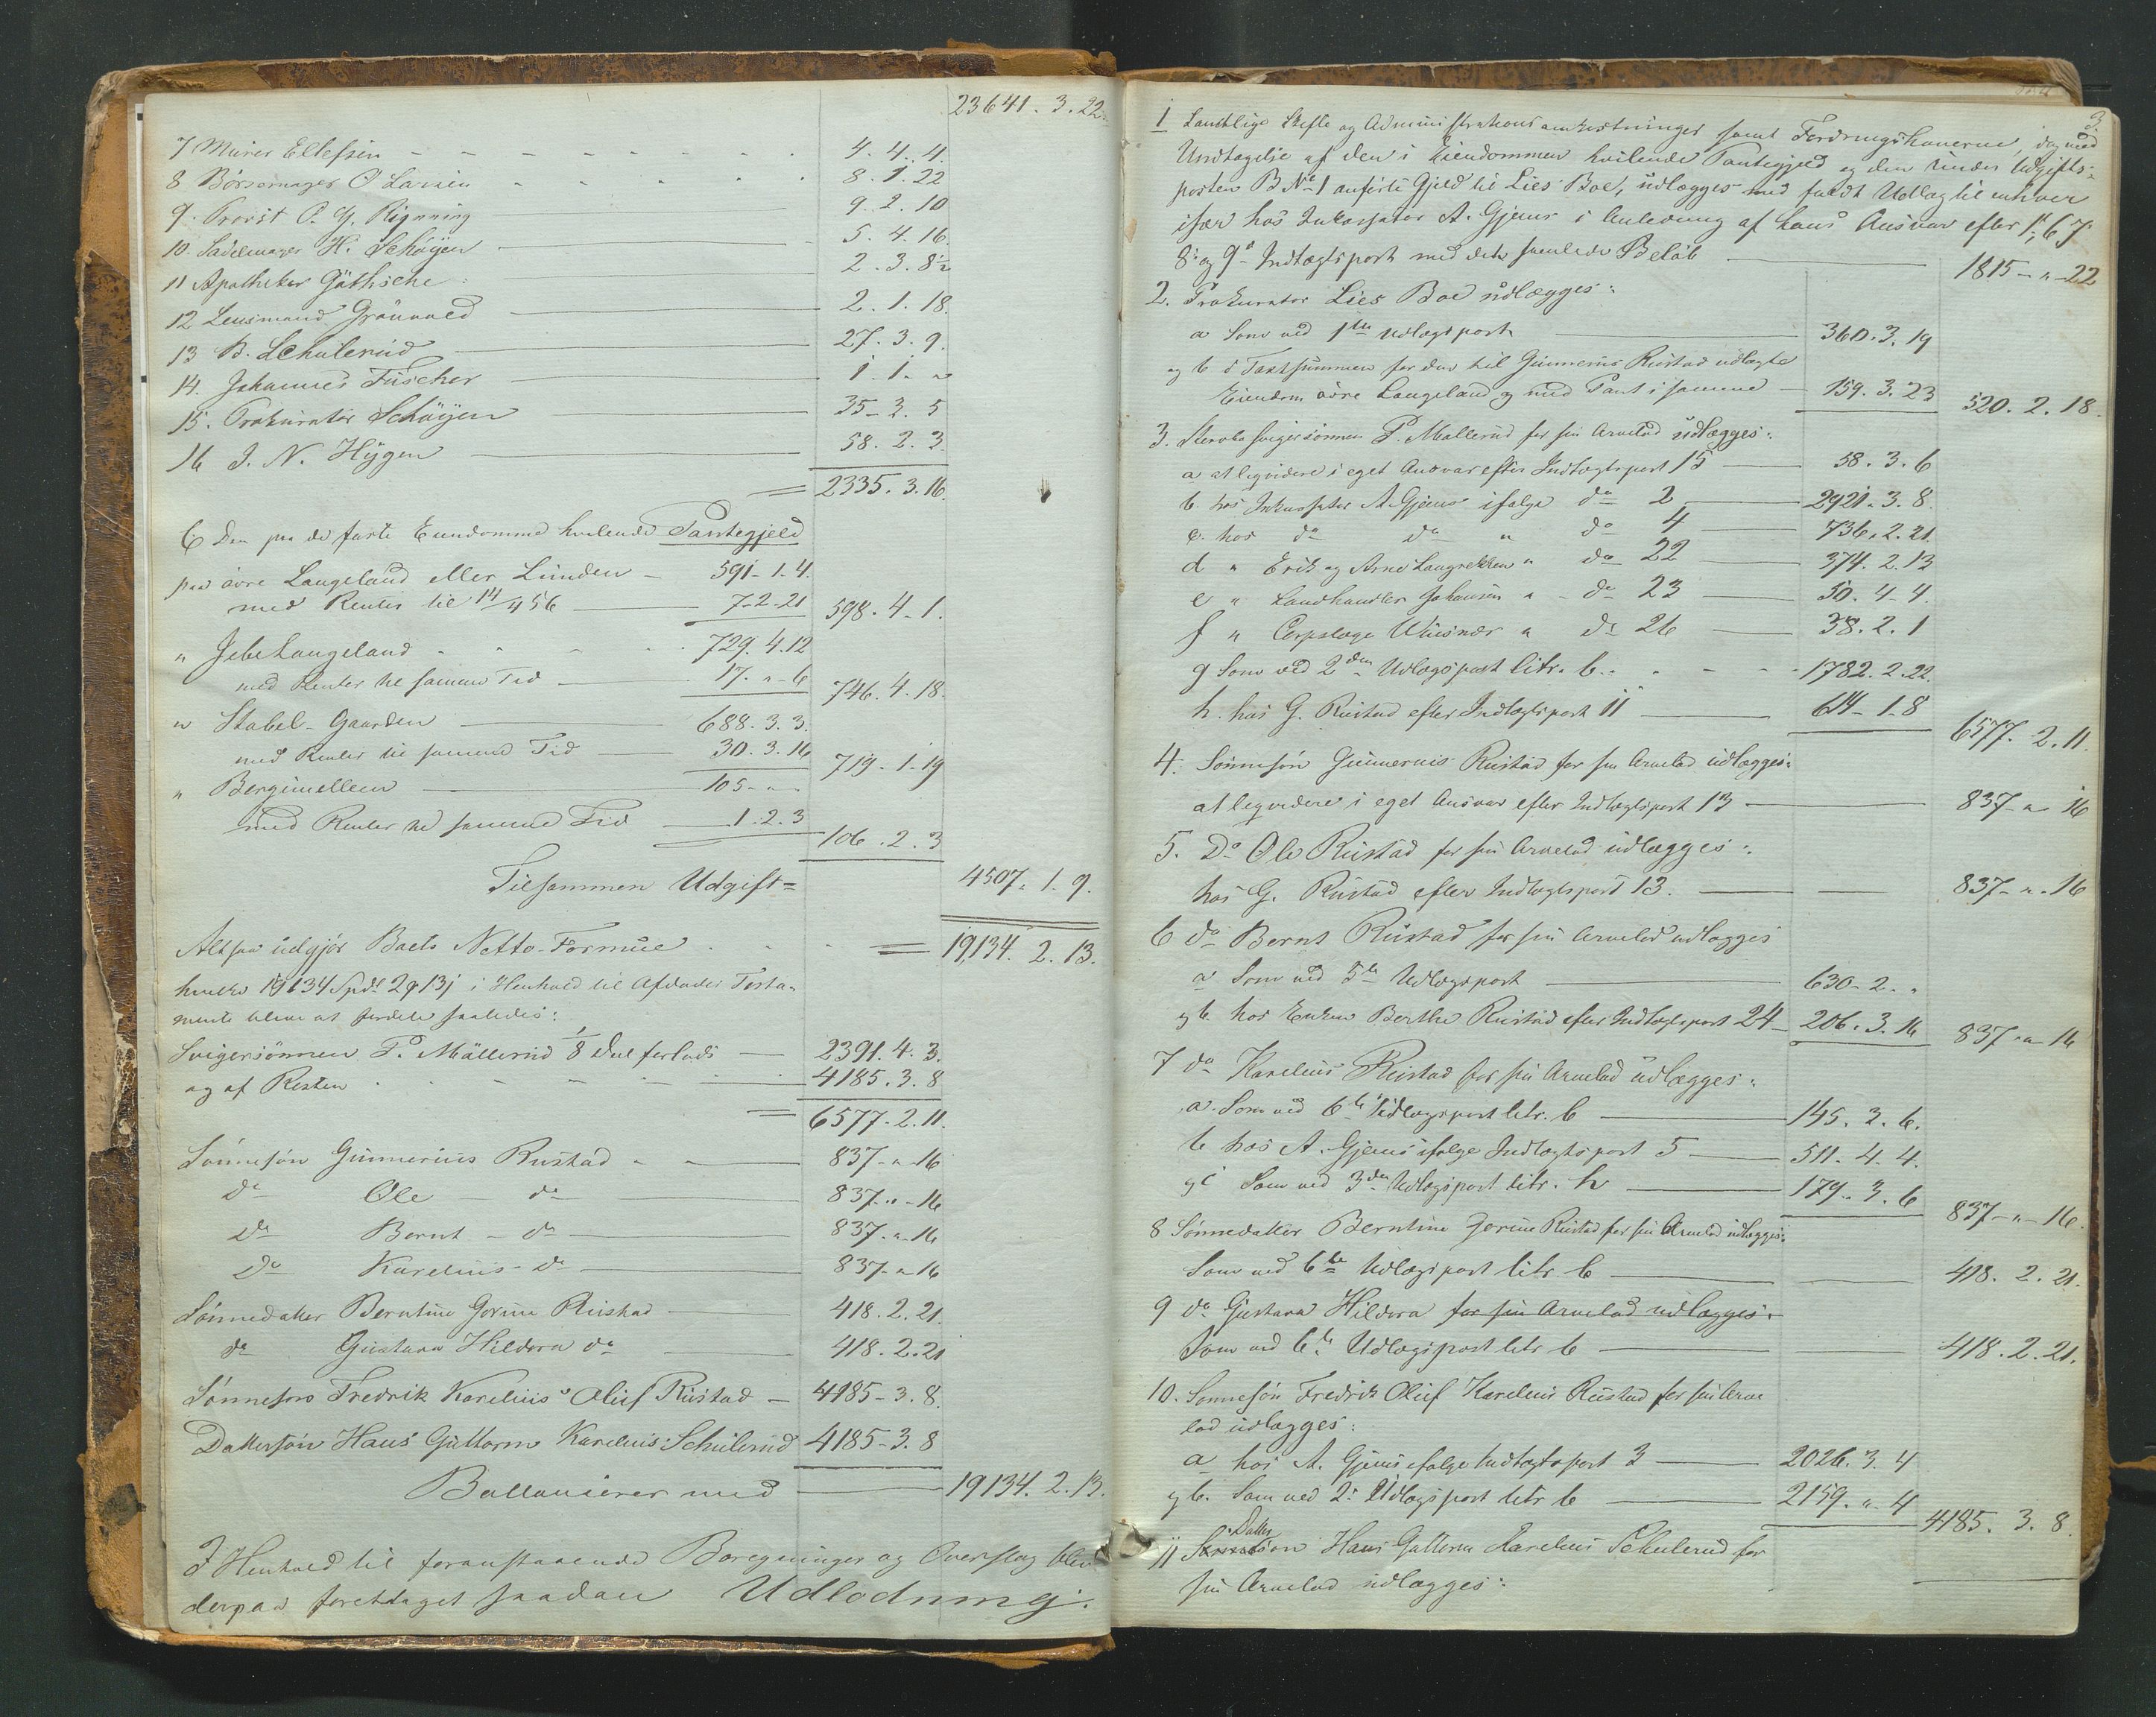 23641. 3. 22.
7 Murer Ellefsen - 4. 4. 4.
8 Börsemager O Larsen - 8. 1. 22
9. Provst P. H. Rignning - 9. 2. 10
10. Sadelmager H. Schöyen - 5. 4. 16.
11 Apotheker Göthsche - 2. 3. 8½
12 Lensmand Grönvold - 2. 1. 18.
13 B. Schulerud - 27. 3. 9.
14. Johannes Fuscher - 1. 1. "
15. Prokurator Schöyen - 35. 3. 5
16 J. N. Hygen - 58. 2. 3.
= 2335. 3. 16.
C Den paa de faste Eiendomme hvilende Pantegjeld
paa övre Langeland eller Lunden - 591. 1. 4.
med Renter til 14/4 56 - 7. 2. 21 598. 4. 1.
" Jebe Langeland - 729. 4. 12
med Renter til samme Tid - 17. " 6 746. 4. 18.
" Stabel-Gaarden - 688. 3. 3.
med Renter til samme Tid - 30. 3. 16 719. 1. 19
" Bergimellem - 105 - " -
med Renter til samme Tid - 1. 2. 3 106. 2. 3
Tilsammen Udgift = 4507. 1. 9.
Altsaa udgjör Boets Netto-Formue - = 19,134. 2. 13.
hvilke 19134 Spdl 2 ₰ 13 s i Henhold til Afdödes Testa-
mente blive at fordele saaledes:
Svigersönnen P. Mällerud 1/8 Deel forlods - 2391. 4. 3.
og af Resten - 4185. 3. 8
= 6577. 2. 11.
Sönnesön Gunnerius Rustad - 837 - " 16
do Ole do - 837 - " - 16
do Bernt - do - 837 - " - 16
do Karelius - do - 837 - " 16
Sönnedatter Berntine Jorine Rustad - 418. 2. 21.
do Gustava Hildora do - 418. 2. 21
Sönnesön Fredrik Karelius Oluf Rustad - 4185 - 3. 8.
Dattersön Hans Guttorm Karelius Schulerud 4185 - 3. 8
Ballancerer med - 19134. 2. 13.
I Henhold til foranstaaende Beregninger og Overslag blev
derpaa foretaget saadan Udlodning.
3.
1 Samtlige Skifte og Administrationsomkostninger samt Fordringshaverne, dog med
Undtagelse af den i Eiendommen hvilende Pantegjeld og den under Udgifts-
posten B No 1 anförte Gjeld til Lies Boe, udlægges med fuldt Udlæg til enhver
især hos Inkassator A. Gjems i Anledning af hans Ansvar efter 1, 6 7
8 og 9 Indtægtspost med dets samlede Belöb - 1815 - " - 22
2. Prokurator Lies Boe udlægges:
a Som ved 1ste Udlægspost - 360. 3. 19
og b i Taxtsummen for den til Gunnerius Rustad udlagte
Eiendom övre Langeland og med Pant i samme - 159. 3. 23 520. 2. 18.
3. Stervbo Svigersönnen P. Mallerud for sin Arvelod udlægges:
a at liqvidere i eget Ansvar efter Indtægtspost 15 - 58. 3. 6
b hos Inkassator A. Gjems ifölge do 2 - 2921. 3. 8.
c. hos do do " do 4 - 736. 2. 21.
d " Erik og Arne Langrekken " do 22 - 374. 2. 13
e " Landhandler Johansen " - do 23 - 50. 4. 4.
f " Corpslæge Wiesner " do 26 - 38. 2. 1
g Som ved 2den Udlægspost litr. b. - 1782. 2. 22.
h. hos G. Rustad efter Indtægtspost 11 - 614 - 1. 8 6577. 2. 11.
4. Sönnesön Gunnerius Rustad for sin Arvelod udlægges:
at liqvidere i eget Ansvar efter Indtægtspost 13 - 837 - " 16
5. Do Ole Rustad for sin Arvelod udlægges:
hos G. Rustad efter Indtægtspost 13. - 837 - " . 16
6 do Bernt Rustad for sin Arvelod udlægges
a Som ved 5te Udlægspost - 630 - 2. "
og b. hos Enken Berthe Rustad efter Indtægtspost 24 - 206. 3. 16 837 - " - 16
7 do Karelius Rustad for sin Arvelod udlægges:
a. Som ved 6te Udlægspost litr. b - 145. 3. 6.
b hos A. Gjems ifölge Indtægtspost 5 - 511. 4. 4.
og c Som ved 3die Udlægspost litr. h - 179. 3. 6 837 - " - 16.
8 Sönnedatter Berntine Jorine Rustad for sin Arvelod udlægges:
Som ved 6te Udlægspost litr. b - 418. 2. 21.
9 do Gustava Hildora for sin Arvelod udlægges:
Som ved 6te Udlægspost litr b - 418. 2. 21.
10. Sönnesön Fredrik Oluf Karelius Rustad for sin Arve
lod udlægges:
a hos A. Gjems ifölge Indtægtspost 3 - 2026. 3. 4
og b. Som ved 2. Udlægspost litr b - 2159. " 4 4185. 3. 8.
Datter
11 Sönnesön Hans Guttorm Karelius Schulerud for
sin Arvelod udlægges: